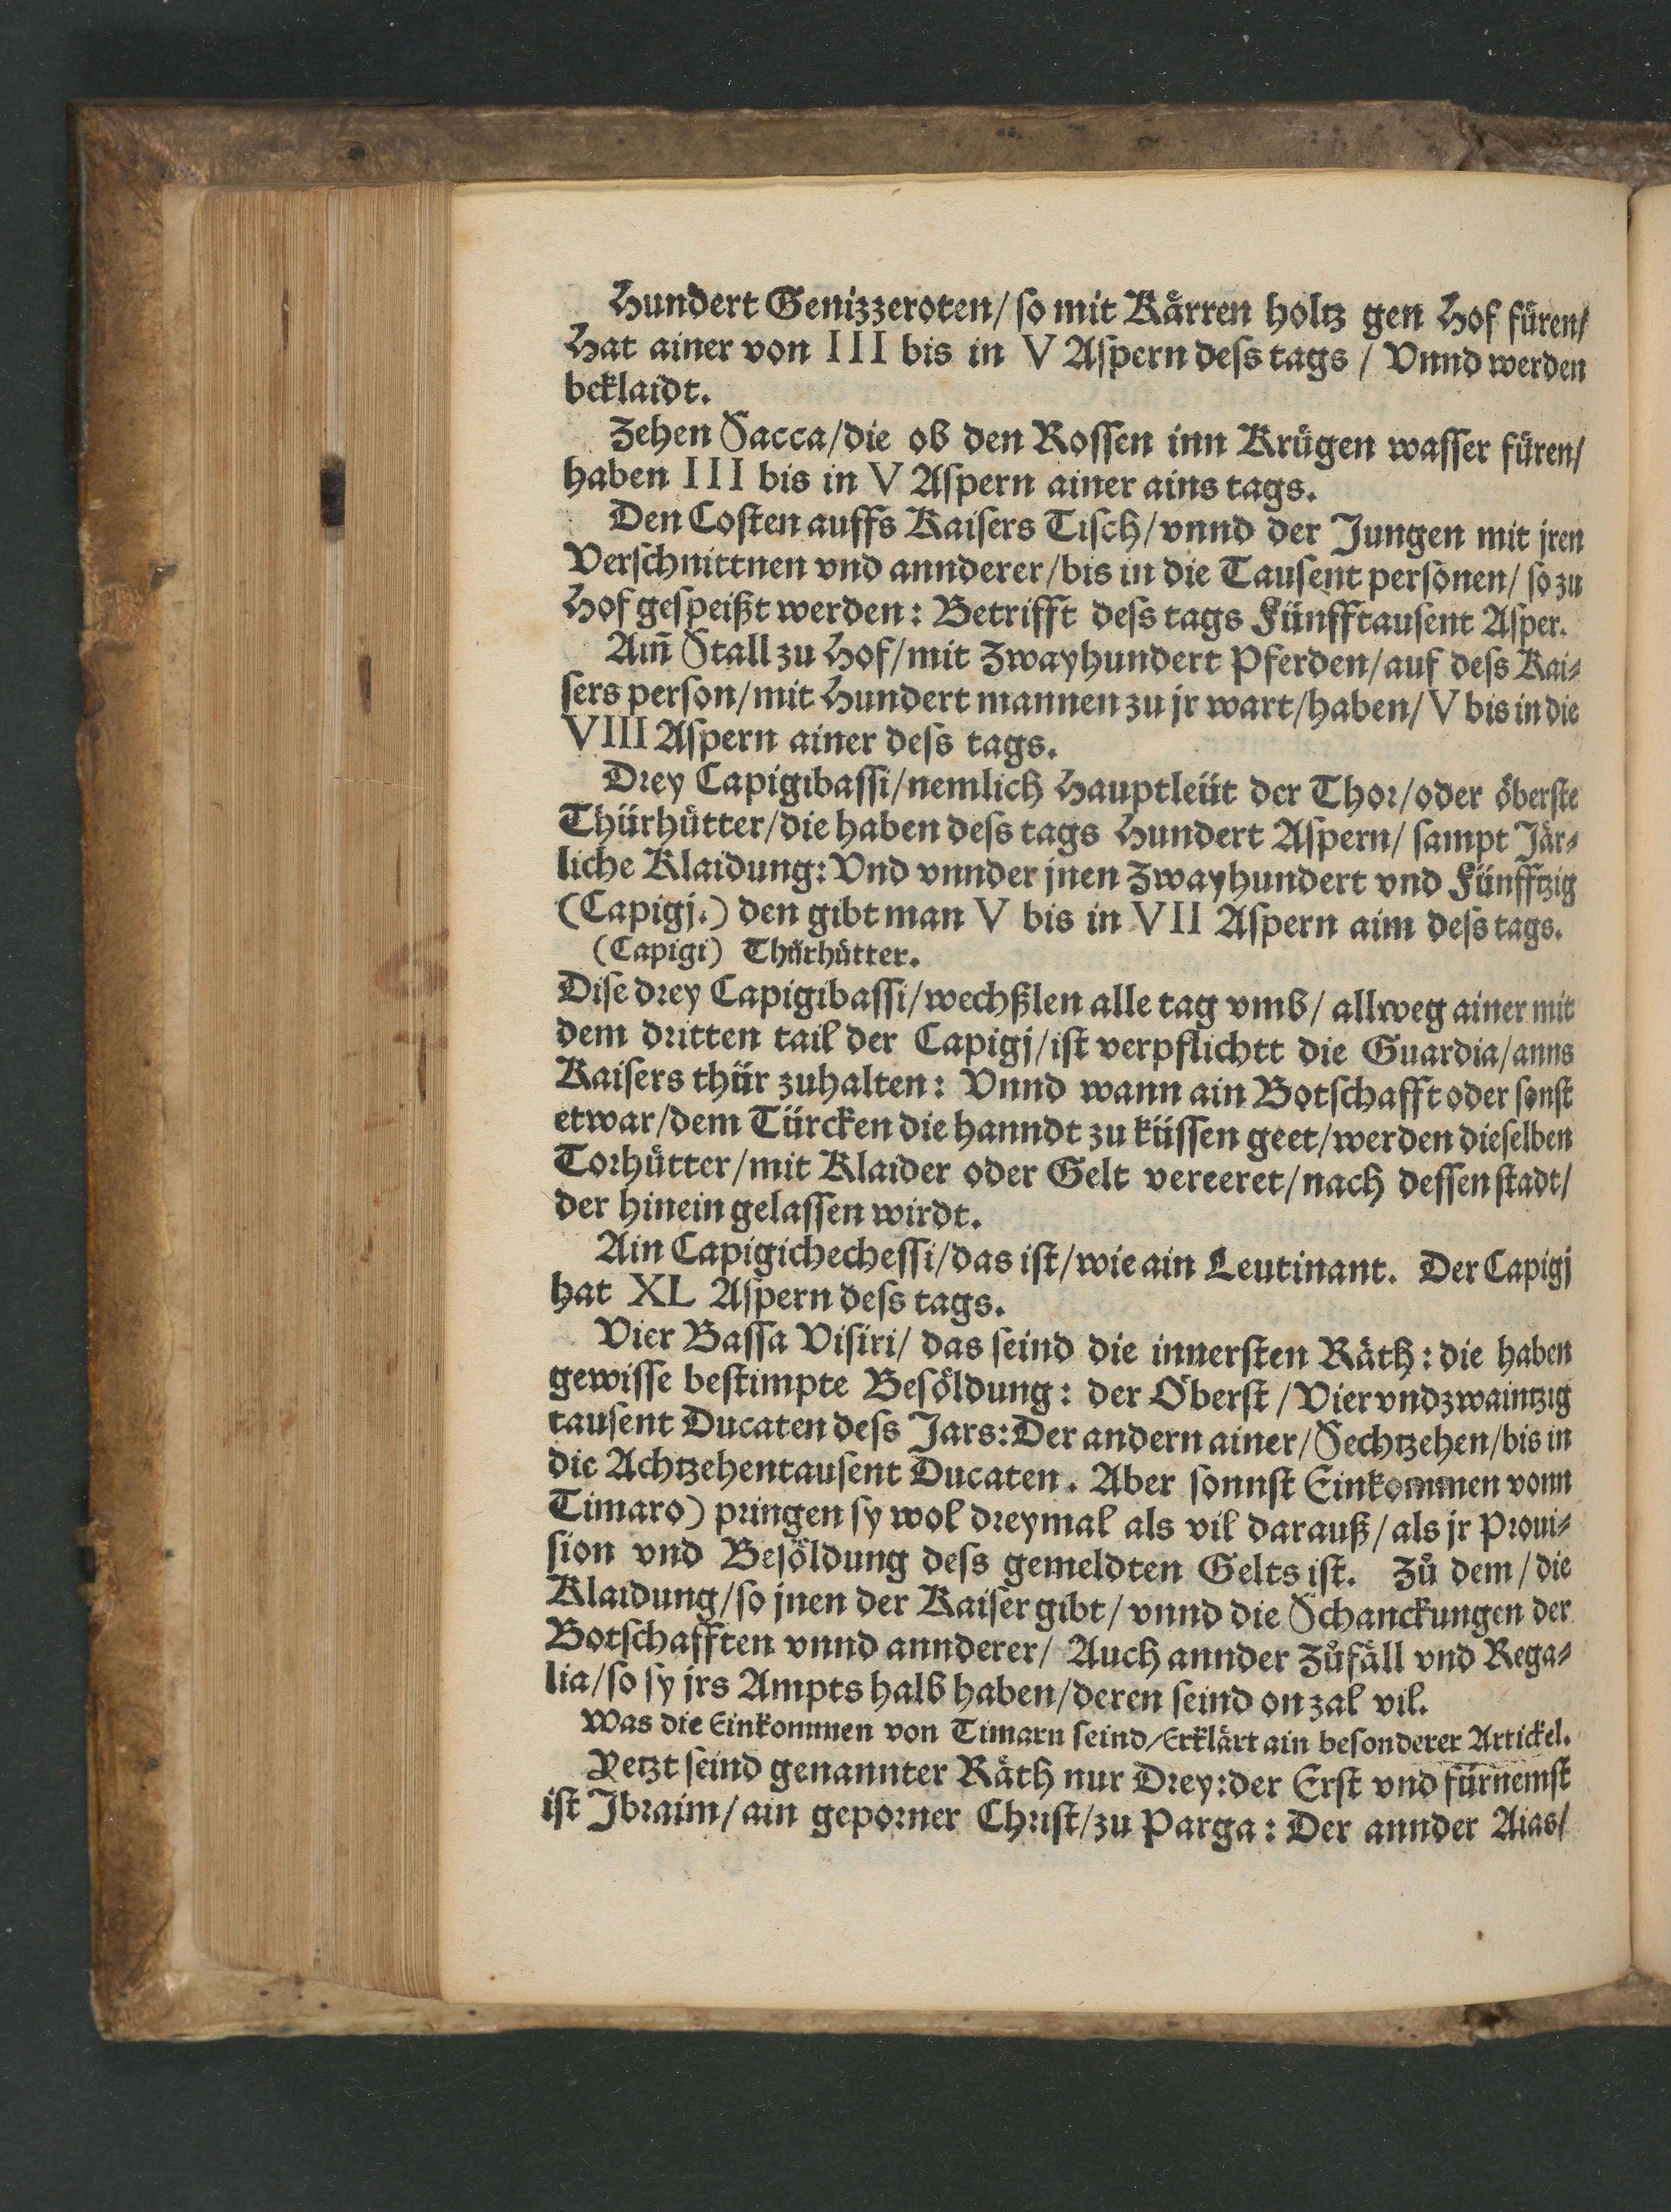 Hundert Genizzeroten/ so mit Kårren holtz gen Hof füren/
Hat ainer von III bis in V Aspern dess tags / Vnnd werden
beklaidt.
Zehen Sacca/die ob den Rossen inn Krügen wasser füren/
haben III bis in V Aspern ainer ains tags.
Den Costen auffs Kaisers Tisch/vnnd der Jungen mit jren
Verschnittnen vnd annderer/bis in die Tausent personen/ so zu
Hof gespeißt werden: Betrifft dess tags Fünfftausent Asper.
Am̃ Stall zu Hof/mit Zwayhundert Pferden/auf dess Kai⸗
sers person/mit Hundert mannen zu jr wart/haben/ V bis in die
VIII Aspern ainer dess tags.
Drey Capigibassi/nemlich Hauptleüt der Thor/oder öberste
Thürhütter/die haben dess tags Hundert Aspern/ sampt Jär⸗
liche Klaidung: Vnd vnnder jnen Zwayhundert vnd Fünfftzig
(Capigj.) den gibt man V bis in VII Aspern aim dess tags.
(Capigi) Thürhütter.
Dise drey Capigibassi/wechßlen alle tag vmb/ allweg ainer mit
dem dritten tail der Capigj/ist verpflichtt die Guardia/anns
Kaisers thür zuhalten: Vnnd wann ain Botschafft oder sonst
etwar/dem Türcken die hanndt zu küssen geet/werden dieselben
Torhütter/mit Klaider oder Gelt vereeret/nach dessen stadt/
der hinein gelassen wirdt.
Ain Capigichechessi/das ist/wie ain Leutinant. Der Capigj
hat XL Aspern dess tags.
Vier Bassa Visiri/ das seind die innersten Räth: die haben
gewisse bestimpte Besöldung: der Öberst /Vier vndzwaintzig
tausent Ducaten dess Jars: Der andern ainer/Sechtzehen/bis in
die Achtzehentausent Ducaten. Aber sonnst Einkommen vonn
Timaro) pringen sy wol dreymal als vil darauß/als jr Proui⸗
sion vnd Besöldung dess gemeldten Gelts ist. Zů dem/die
Klaidung/so jnen der Kaiser gibt/ vnnd die Schanckungen der
Botschafften vnnd annderer/ Auch annder Zůfäll vnd Rega⸗
lia/so sy jrs Ampts halb haben/deren seind on zal vil.
Was die Einkommen von Timarn seind/Erklärt ain besonderer Artickel.
Yetzt seind genannter Räth nur Drey: der Erst vnd fürnemst
ist Jbraim/ain geporner Christ/zu Parga: Der annder Aias/